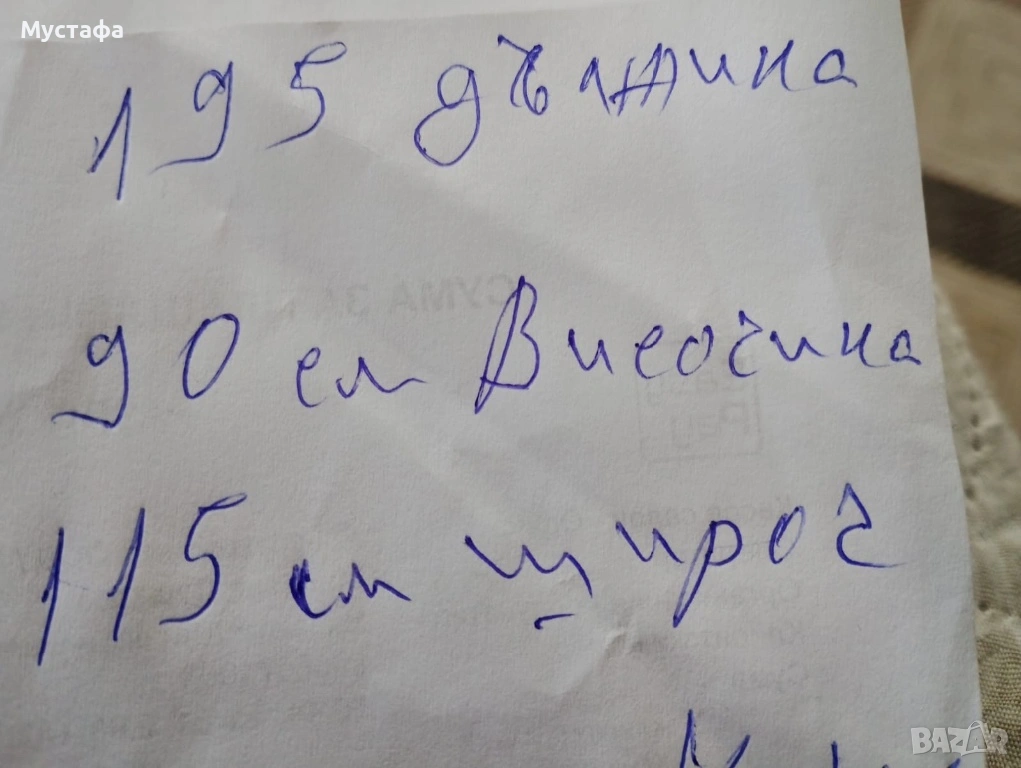 Мустафа
195 дължина
90 см Височина
115 см широч
СУМА ЗА
Easy
Pay
BAZAR